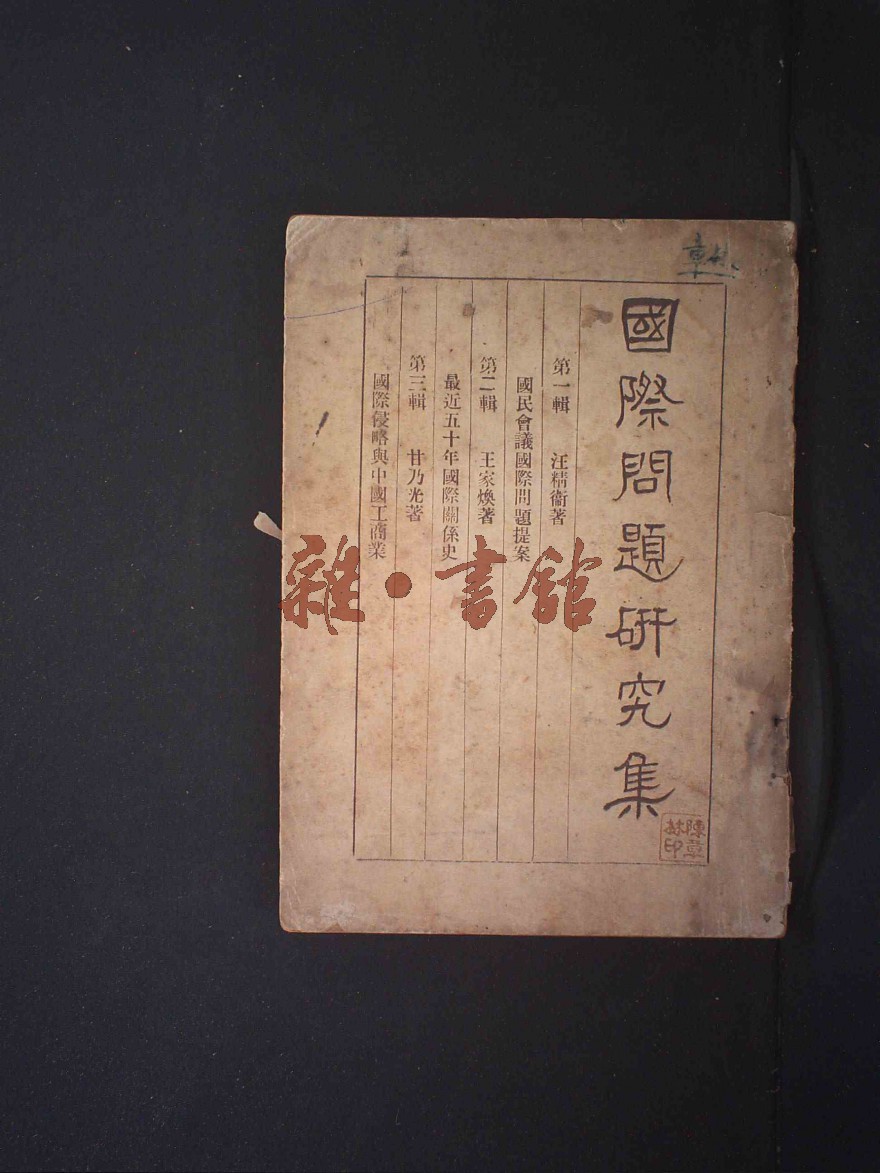 國際問題研究集
第一輯 汪精衞著
國民會議國際問題提案
第二輯 王家煥著
最近五十年國際關係史
第三輯 甘乃光著
國際侵略與中國工商業
雜·書館